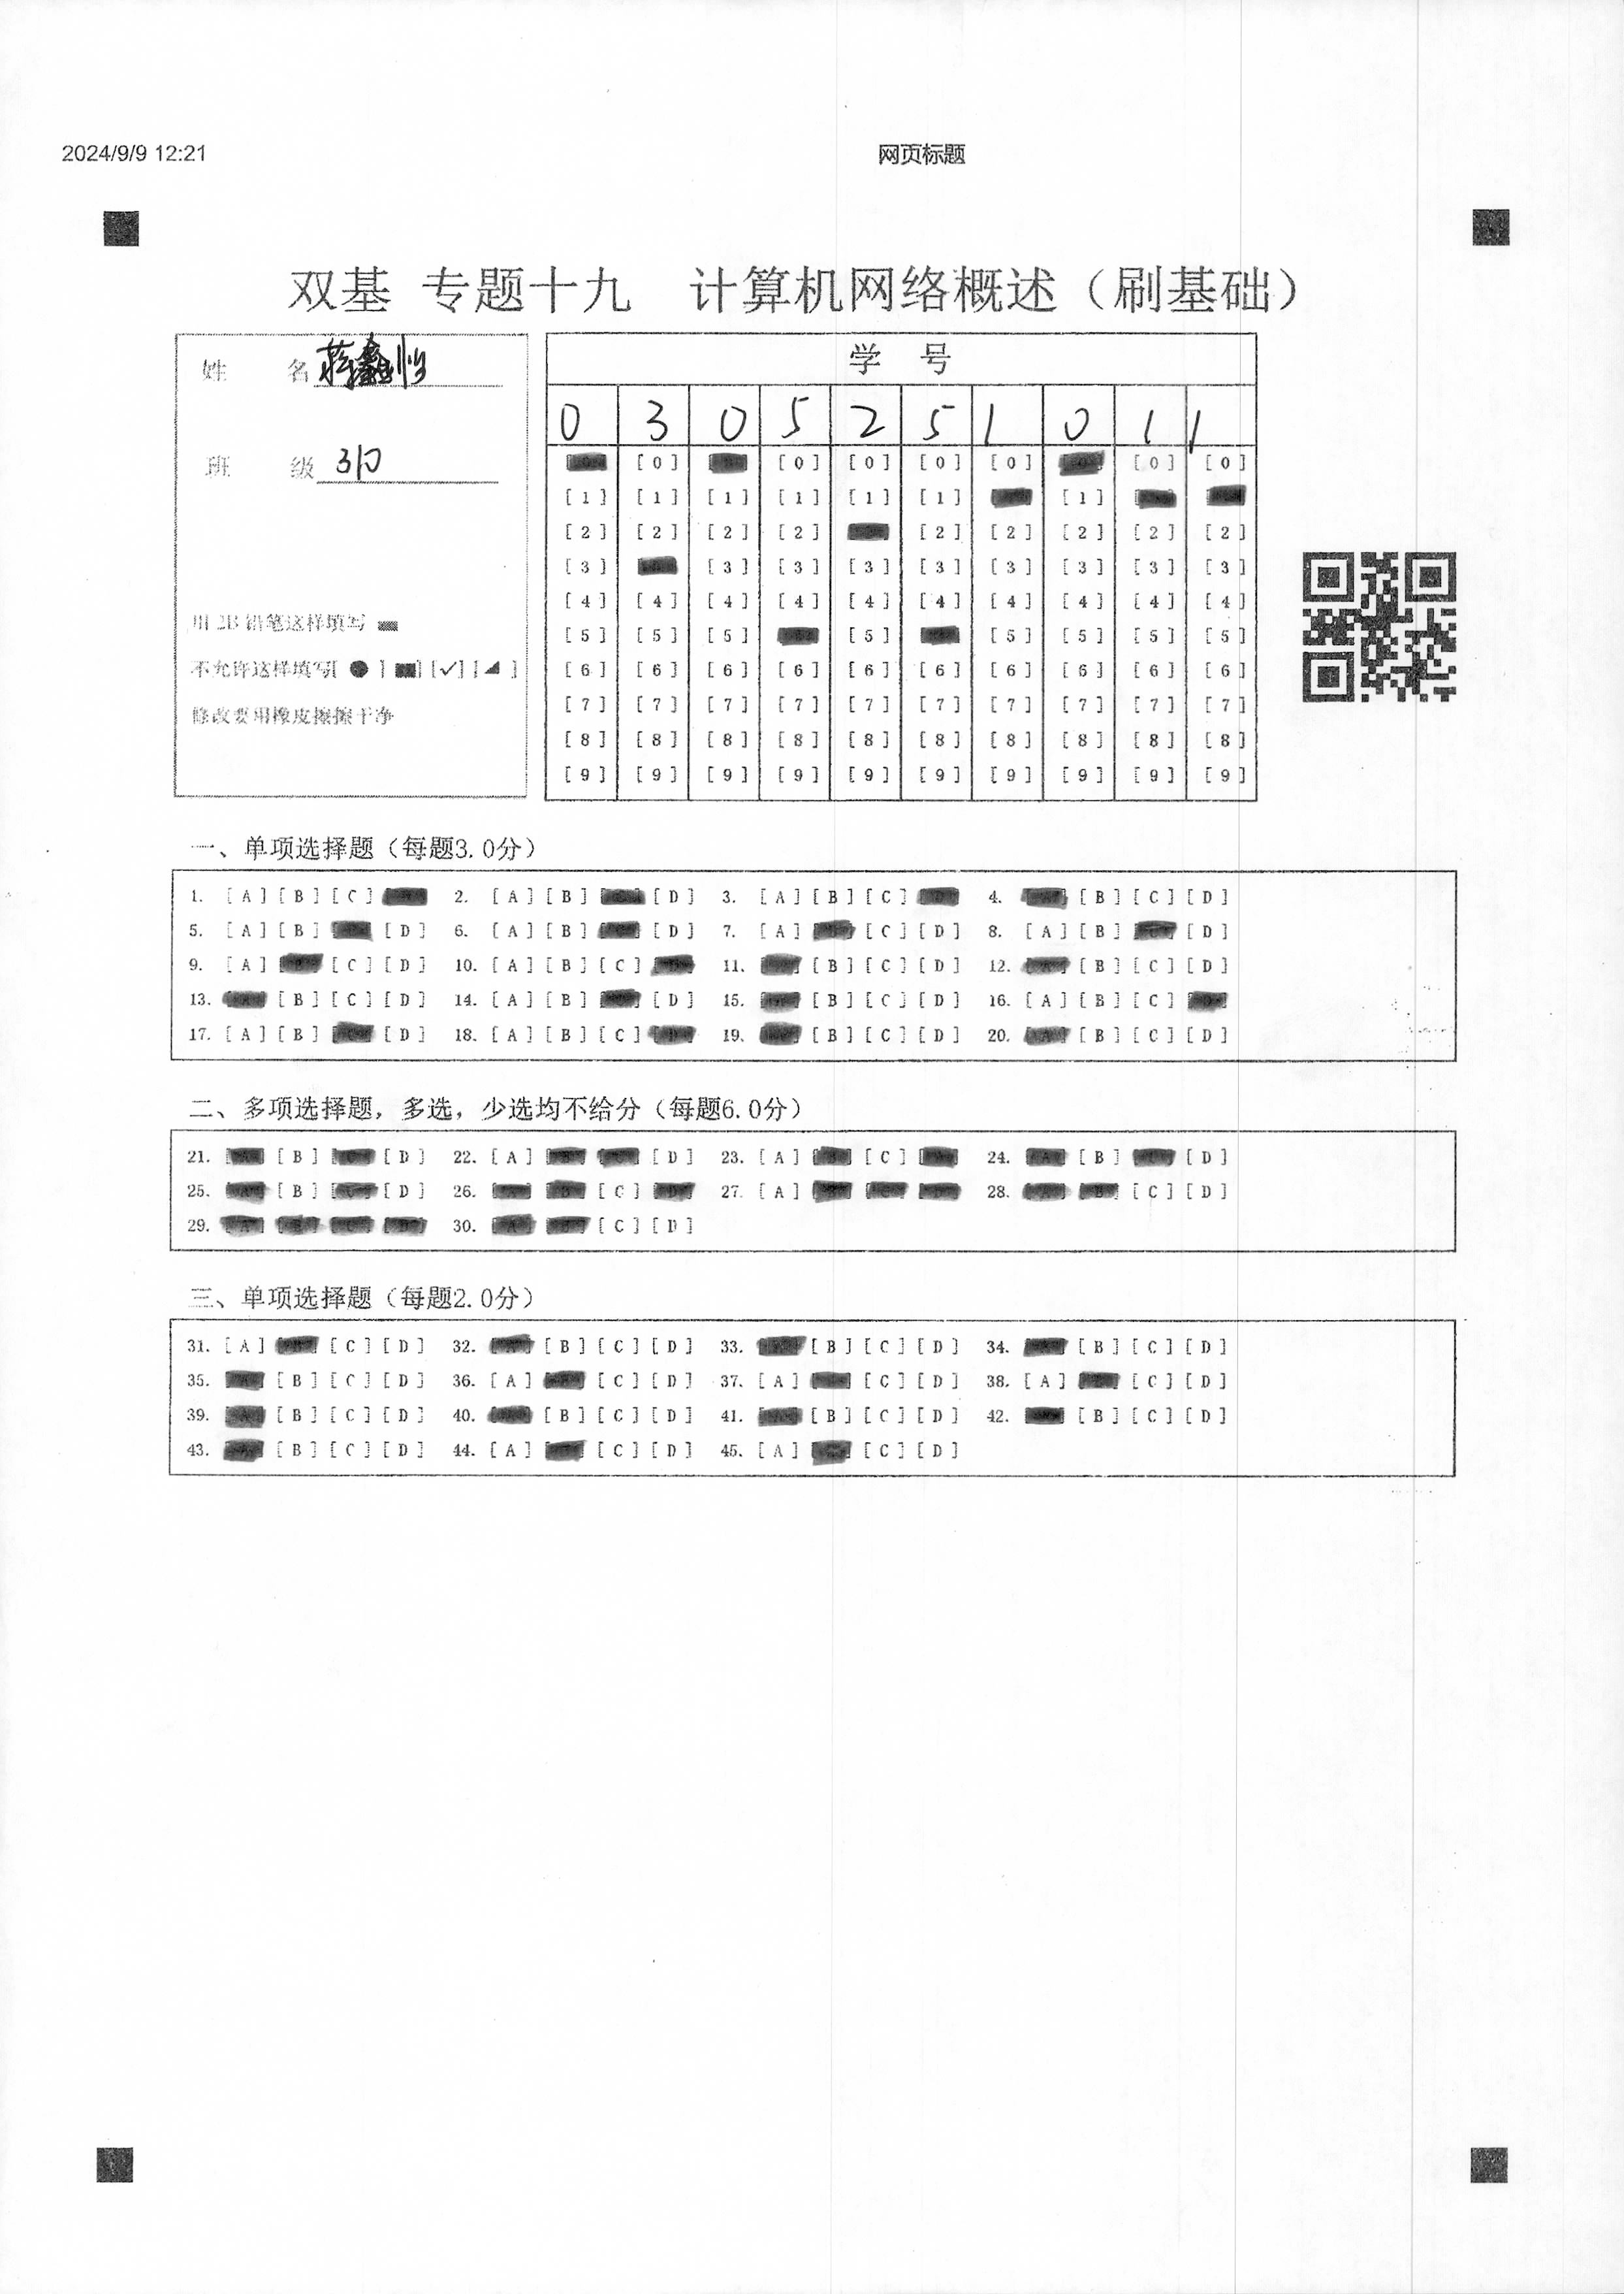 2024/9/9 12:21 网页标题
双基 专题十九 计算机网络概述（刷基础）
姓 名
班 级
用 2B 铅笔这样填写
不允许这样填写[ ● ] [■] [✓] [◢ ]
修改要用橡皮擦擦干净
学 号
0 3 0 5 2 5 1 0 1 1
[0] [0] [0] [0] [0] [0] [0]
[1] [1] [1] [1] [1] [1] [1]
[2] [2] [2] [2] [2] [2] [2] [2] [2]
[3] [3] [3] [3] [3] [3] [3] [3] [3]
[4] [4] [4] [4] [4] [4] [4] [4] [4] [4]
[5] [5] [5] [5] [5] [5] [5] [5]
[6] [6] [6] [6] [6] [6] [6] [6] [6] [6]
[7] [7] [7] [7] [7] [7] [7] [7] [7] [7]
[8] [8] [8] [8] [8] [8] [8] [8] [8] [8]
[9] [9] [9] [9] [9] [9] [9] [9] [9] [9]
一、单项选择题（每题3.0分）
1. [A] [B] [C] 2. [A] [B] [D] 3. [A] [B] [C] 4. [B] [C] [D]
5. [A] [B] [D] 6. [A] [B] [D] 7. [A] [C] [D] 8. [A] [B] [D]
9. [A] [C] [D] 10. [A] [B] [C] 11. [B] [C] [D] 12. [B] [C] [D]
13. [B] [C] [D] 14. [A] [B] [D] 15. [B] [C] [D] 16. [A] [B] [C]
17. [A] [B] [D] 18. [A] [B] [C] 19. [B] [C] [D] 20. [B] [C] [D]
二、多项选择题，多选，少选均不给分（每题6.0分）
21. [B] [D] 22. [A] [D] 23. [A] [C] 24. [B] [D]
25. [B] [D] 26. [C] 27. [A] 28. [C] [D]
29. 30. [C] [D]
三、单项选择题（每题2.0分）
31. [A] [C] [D] 32. [B] [C] [D] 33. [B] [C] [D] 34. [B] [C] [D]
35. [B] [C] [D] 36. [A] [C] [D] 37. [A] [C] [D] 38. [A] [C] [D]
39. [B] [C] [D] 40. [B] [C] [D] 41. [B] [C] [D] 42. [B] [C] [D]
43. [B] [C] [D] 44. [A] [C] [D] 45. [A] [C] [D]